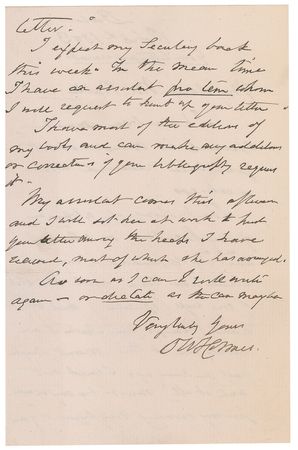 letter."
I expect my Secretary back
this week. In the mean time
I have an assistant pro tem whom
I will request to hunt up your letter
I have most of the editions of
my books and can make any additions
or corrections if your bibliography requires
it.
My assistant comes this afternoon
and I will set her at work to find
your letter among the heaps I have
received, most of which she has arranged.
As soon as I can I will write
again – or dictate as the case may be
Very truly yours
O W Holmes.